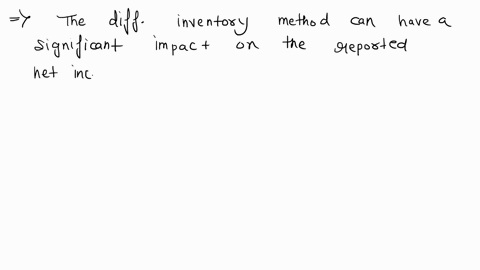 => The diff. inventory method can have a
significant impact on the reported
net inc